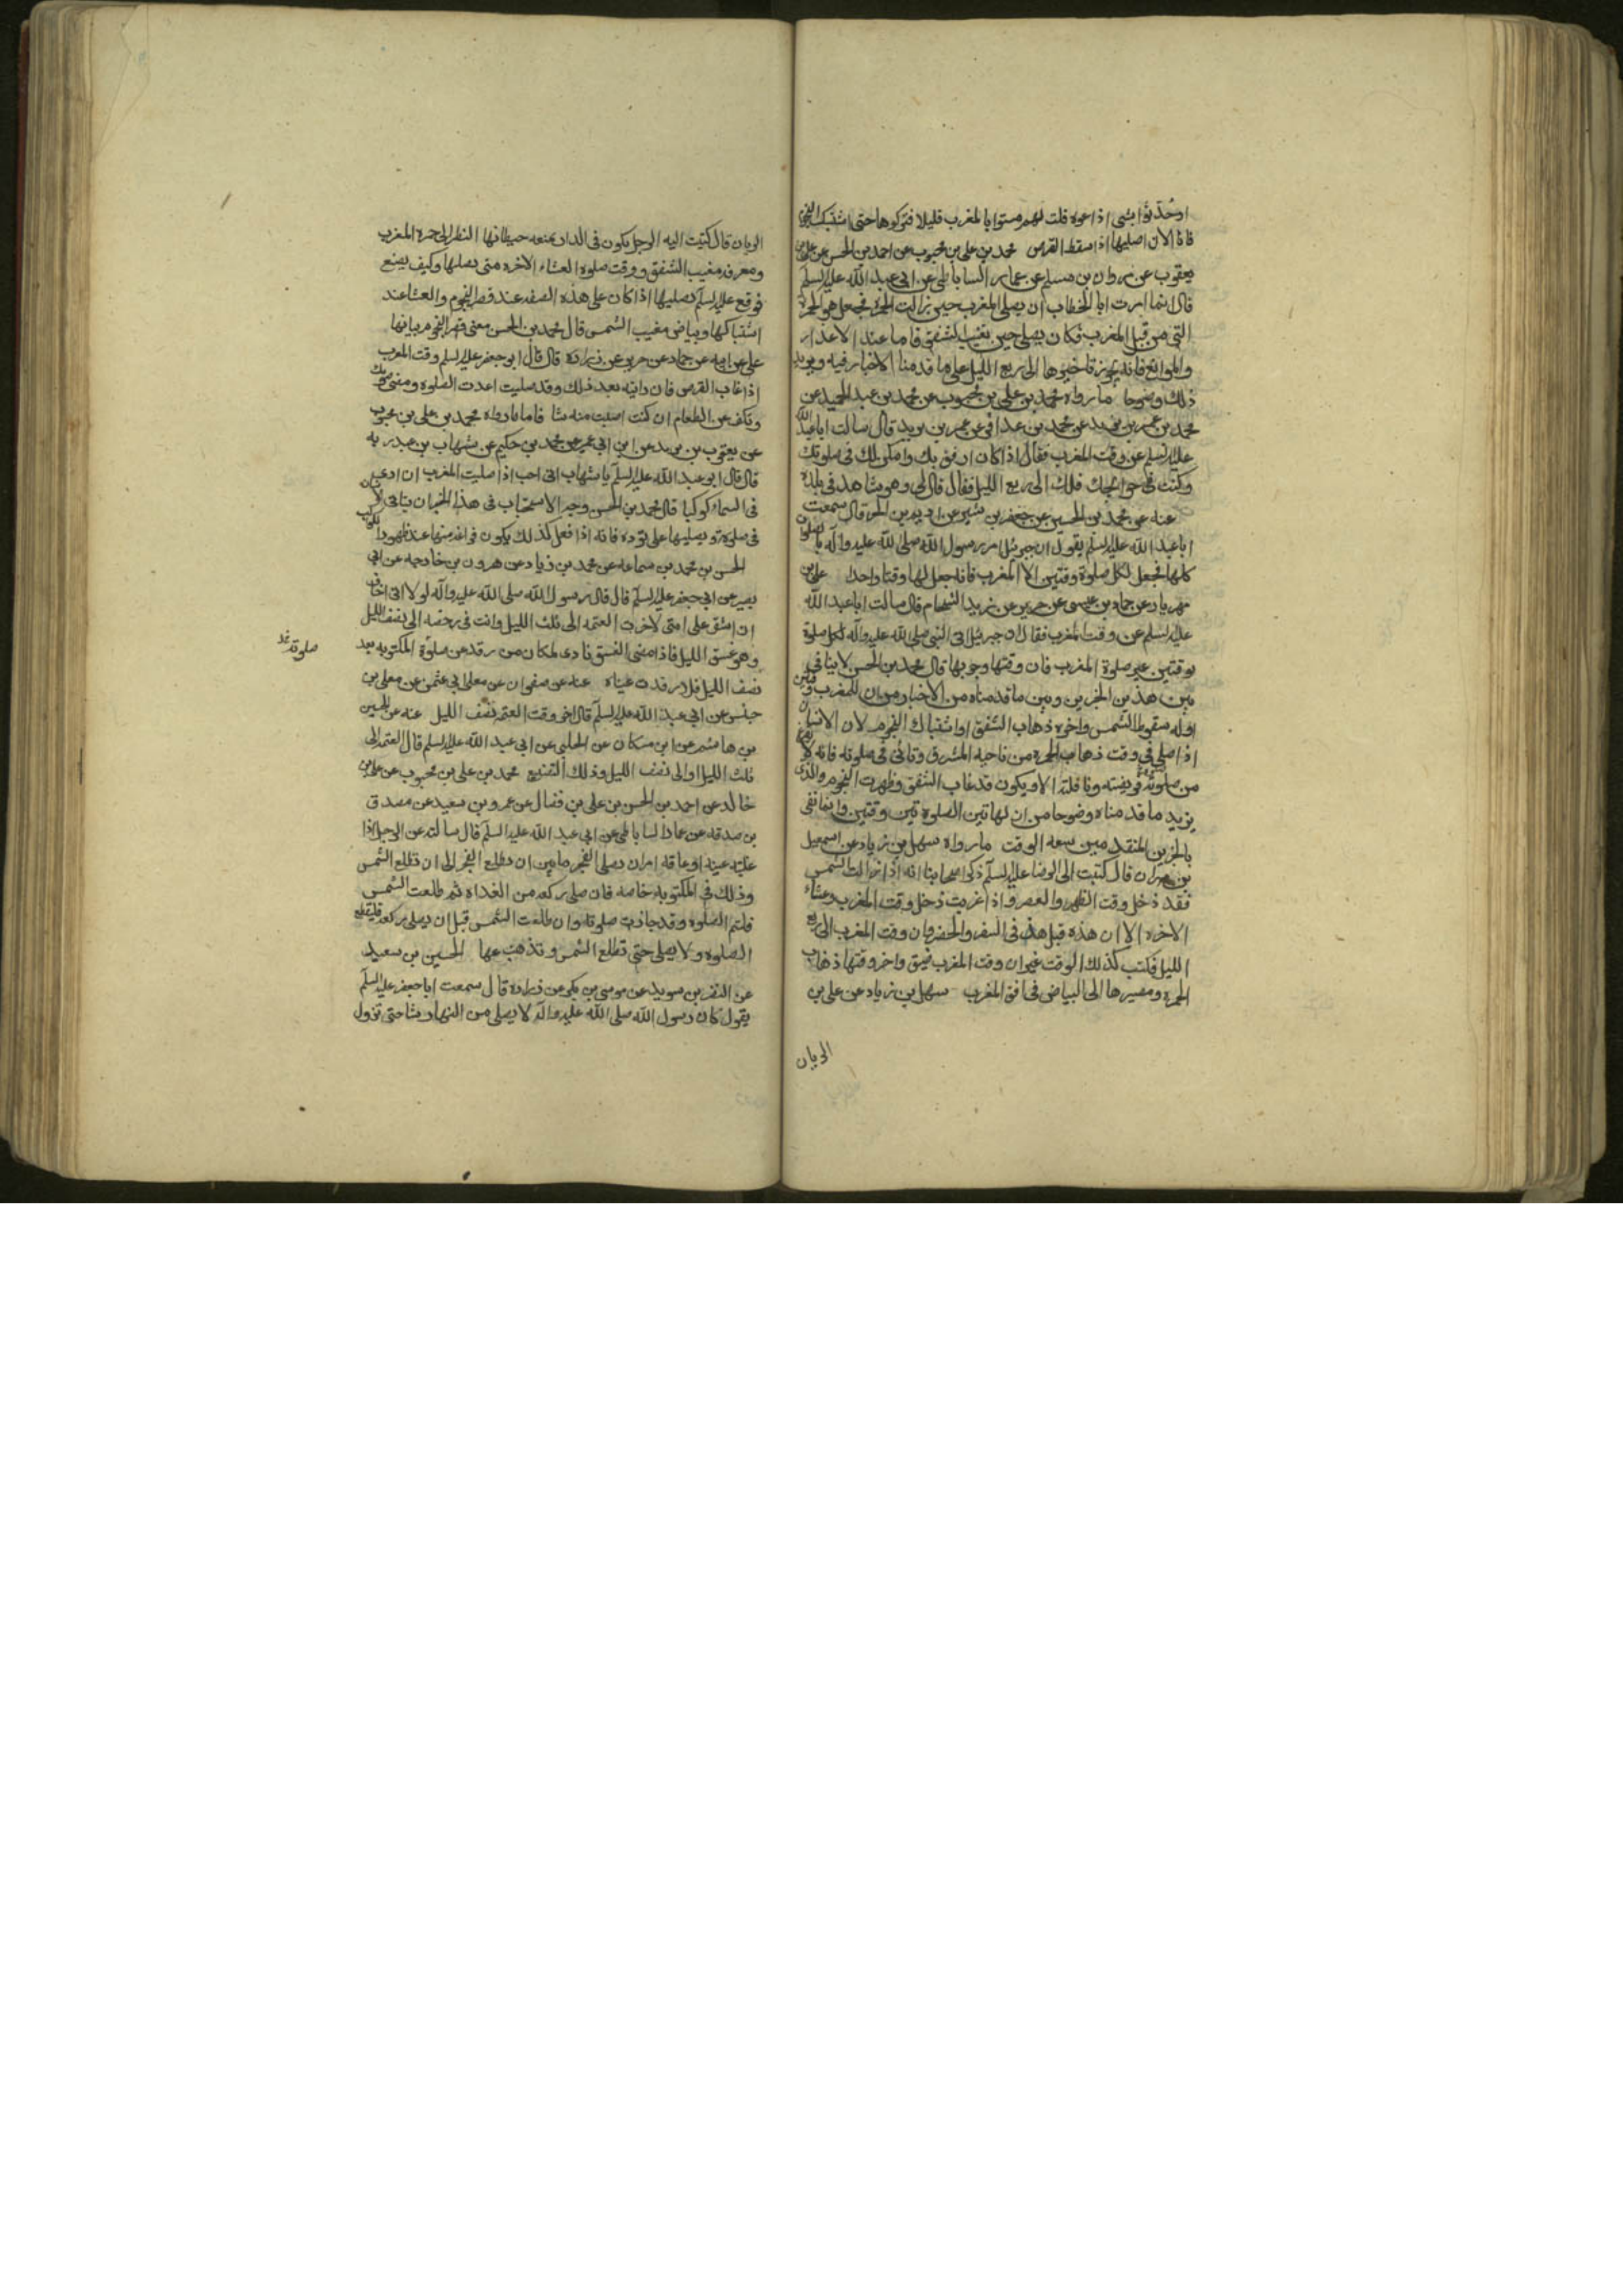 اوحدثوا بشى اذاعوه قلت لهم مستوا بالمغرب قليلا فتركوها حتى اشتبكت النجوم
فانا الان اصليها اذا سقط القرص محمد بن على بن محبوب عن احمد بن الحسن عن على بن
يعقوب عن مروان بن مسلم عن عمار الساباطى عن ابى عبد الله عليه السلم
قال انما امرت ابا الخطاب ان يصلى المغرب حين زالت الحمرة فجعل هو الحمرة
التى من قبل المغرب فكان يصلى حين يغيب الشفق فاما عند الاعذار
والموانع فانه يجوز تاخيرها الى ربع الليل على ما قدمنا الاخبار فيه ويزيد
ذلك وضوحا ما رواه محمد بن على بن محبوب عن محمد بن عبد الحميد عن
محمد بن عمر بن يزيد عن محمد بن عذافر عن عمر بن يزيد قال سالت ابا عبد الله
عليه السلم عن وقت المغرب فقال اذا كان ارفق بك وامكن لك فى صلوتك
وكنت فى حوائجك فلك الى ربع الليل فقال قال لى وهو شاهد فى بلده
عنه عن محمد بن الحسين عن جعفر بن بشير عن اديم بن الحر قال سمعت
ابا عبد الله عليه السلم يقول ان جبرئيل امر رسول الله صلى الله عليه واله بالصلوات
كلها فجعل لكل صلوة وقتين الا المغرب فانه جعل لها وقتا واحدا على بن
مهزيار عن حماد بن عيسى عن حريز عن زيد الشحام قال سالت ابا عبد الله
عليه السلم عن وقت المغرب فقال ان جبرئيل اتى النبى صلى الله عليه واله لكل صلوة
بوقتين غير صلوة المغرب فان وقتها وجوبها قال محمد بن الحسن لا ينافى
بين هذين الخبرين وبين ما قدمناه من الاخبار من ان للمغرب وقتين
اوله سقوط الشمس واخره ذهاب الشفق او اشتباك النجوم لان الانسان
اذا صلى فى وقت ذهاب الحمرة من ناحيه المشرق وتانى فى صلوته فانه لا يفرغ
من صلوته فريضته ونافلته الا ويكون قد غاب الشفق وظهرت النجوم والذى
يزيد ما قدمناه وضوحا من ان لهاتين الصلوتين وقتين وانما نفى
بالخبرين المتقدمين سعه الوقت ما رواه سهل بن زياد عن اسمعيل
بن مهران قال كتبت الى الرضا عليه السلم ذكر اصحابنا انه اذا زالت الشمس
فقد دخل وقت الظهر والعصر واذا غربت دخل وقت المغرب وعشاء
الاخره الا ان هذه قبل هذه فى السفر والحضر وان وقت المغرب الى ربع
الليل فكتب كذلك الوقت غير ان وقت المغرب ضيق واخر وقتها ذهاب
الحمره ومصيرها الى البياض فى افق المغرب سهل بن زياد عن على بن
الريان
الريان قال كتبت اليه الرجل يكون فى الدار يمنعه حيطانها النظر الى حمرة المغرب
ومعرفه مغيب الشفق ووقت صلوة العشاء الاخره متى يصليها وكيف يصنع
فوقع عليه السلم يصليها اذا كان على هذه الصفه عند قصر النجوم والعشا عند
اشتباكها وبياض مغيب الشمس قال محمد بن الحسن معنى قصر النجوم بيانها
على عن ابيه عن حماد عن حريز عن زرارة قال قال ابو جعفر عليه السلم وقت المغرب
اذا غاب القرص فان رايته بعد ذلك وقد صليت اعدت الصلوة ومضى صومك
وتكف عن الطعام ان كنت اصبت منه شا فاما ما رواه محمد بن على بن محبوب
عن يعقوب بن يزيد عن ابن ابى عمير عن محمد بن حكيم عن شهاب بن عبد ربه
قال قال ابو عبد الله عليه السلم يا شهاب انى احب اذا صليت المغرب ان ارى
فى السماء كوكبا قال محمد بن الحسن وجه الاستحباب فى هذا الخبر ان يتانى الانسان
فى صلوته ويصليها على توده فانه اذا فعل كذلك يكون فراغه منها عند ظهور الكواكب
الحسن بن محمد بن سماعه عن محمد بن زياد عن هرون بن خارجه عن ابى
بصير عن ابى جعفر عليه السلم قال قال رسول الله صلى الله عليه واله لولا انى اخاف
ان اشق على امتى لاخرت العتمه الى ثلث الليل وانت فى رخصه الى نصف الليل
وهو غسق الليل فاذا مضى الغسق نادى ملكان من رقد عن صلوة المكتوبه بعد
صلوة غد
نصف الليل فلا رقدت عيناه عنه عن صفوان عن معلى ابى عثمن عن معلى بن
خنيس عن ابى عبد الله عليه السلم قال اخر وقت العتمه نصف الليل عنه عن الحسين
بن هاشم عن ابن مسكان عن الحلبى عن ابى عبد الله عليه السلم قال العتمه الى
ثلث الليل او الى نصف الليل وذلك التضييع محمد بن على بن محبوب عن على بن
خالد عن احمد بن الحسن بن على بن فضال عن عمرو بن سعيد عن مصدق
بن صدقه عن عمار الساباطى عن ابى عبد الله عليه السلم قال سالته عن الرجل اذا
غلبته عينه او عاقه امر ان يصلى الفجر ما بين ان يطلع الفجر الى ان تطلع الشمس
وذلك فى المكتوبه خاصه فان صلى ركعه من الغداة ثم طلعت الشمس
فليتم الصلوة وقد جازت صلوته وان طلعت الشمس قبل ان يصلى ركعه فليقطع
الصلوة ولا يصلى حتى تطلع الشمس وتذهب عها الحسين بن سعيد
عن النضر بن سويد عن موسى بن بكر عن زرارة قال سمعت ابا جعفر عليه السلم
يقول كان رسول الله صلى الله عليه واله لا يصلى من النهار شا حتى تزول